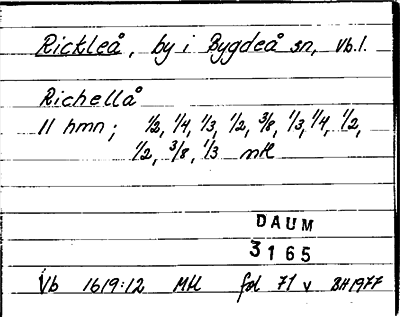 Rickleå, by i Bygdeå sn, Vb.l.
Richellå
11 hmn; 1/2, 1/4, 1/3, 1/2, 3/8, 1/3, 1/4, 1/2,
1/2, 3/8, 1/3 mtl
DAUM
3165
Vb 1619:12 Mtl fol 71 v BH1977